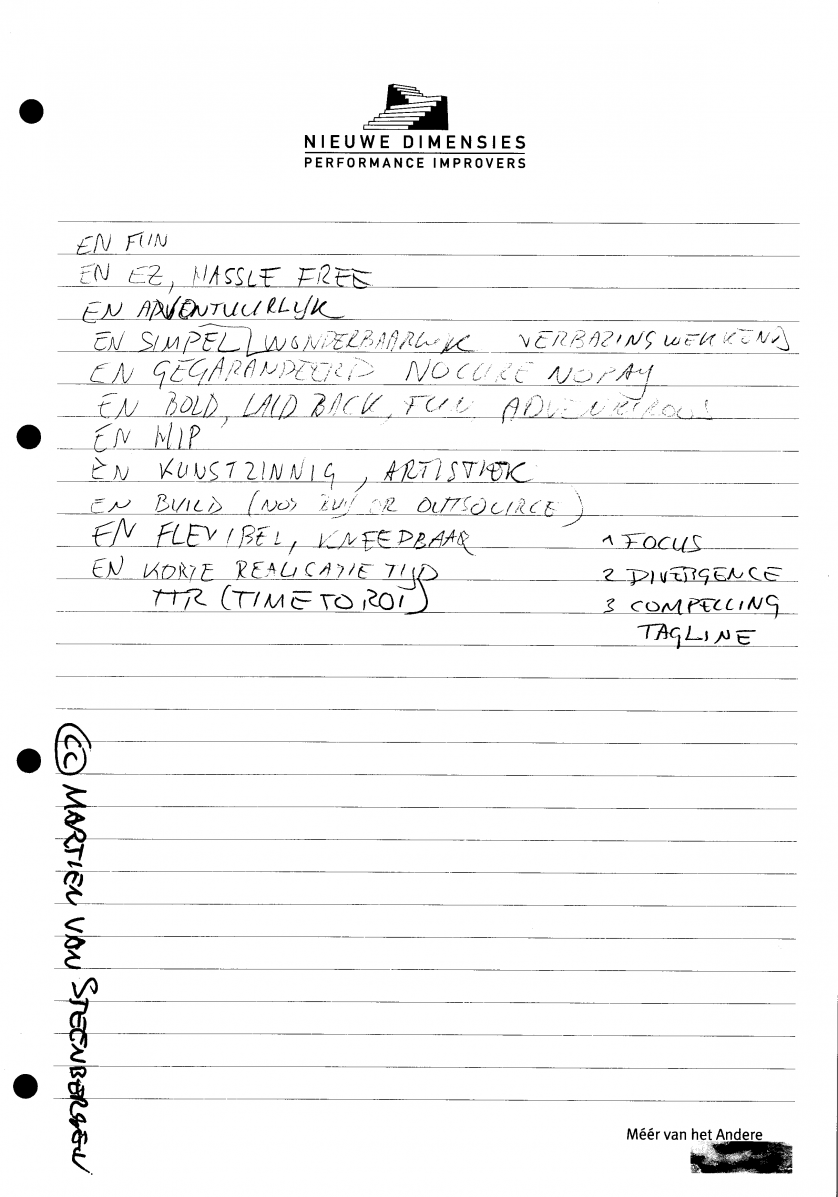 NIEUWE DIMENSIES
PERFORMANCE IMPROVERS
EN FUN
EN EZ, HASSLE FREE
EN ADVENTUURLIJK
EN SIMPEL WONDERBAARLIJK VERBAZINGWEKKEND
EN GEGARANDEERD NO CURE NO PAY
EN BOLD, LAID BACK, FUN, ADVENTUROUS
EN HIP
EN KUNSTZINNIG, ARTISTIEK
EN BUILD (NOT BUY OR OUTSOURCE)
EN FLEXIBEL, KNEEDBAAR
EN KORTE REALICATIE TIJD
TTR (TIME TO ROI)
1 FOCUS
2 DIVERGENCE
3 COMPELLING
TAGLINE
(CC) MARTIEN VAN STEENBERGEN
Méér van het Andere